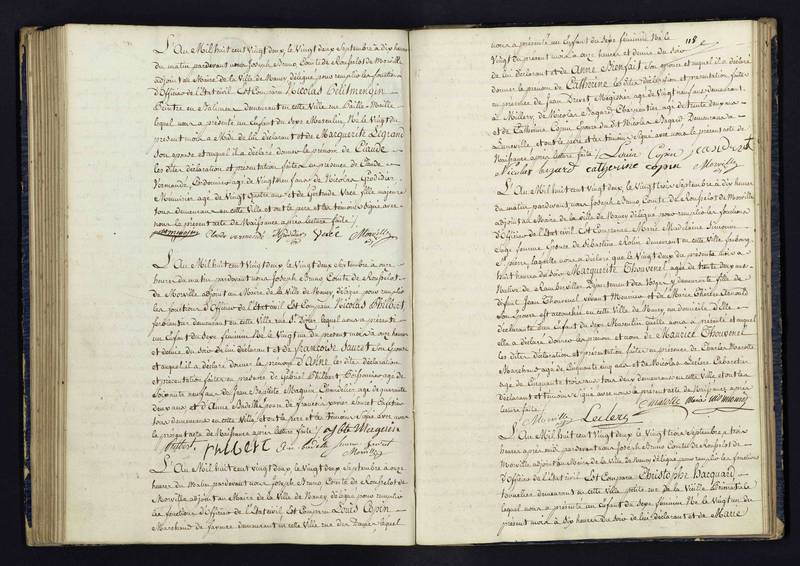 L'An Mil huit cent Vingt deux, le Vingt deux Septembre à dix heures
du matin pardevant nous Joseph Bruno Comte de Rouspelot de Morville
adjoint au Maire de la Ville de Nancy délégué pour remplir les fonctions
d'Officier de l'Etat civil Est Comparu Nicolas Petitmengin
Peintre en Batimens demeurant en cette Ville rue Paille-Maille
lequel nous a présenté un Enfant du Sexe Masculin, Né le Vingt du
présent mois à Midi de lui déclarant et de Marguerite Legrand
Son épouse et auquel il a déclaré donner le prénom de Claude
les dites déclaration et présentation faites en présence de Claude
agé de Vingt neuf ans et de Nicolas
Menuisier agé de Vingt quatre ans et de Gertrude Vacé fille majeure
tous demeurans en cette Ville et ont le père et les témoins signé avec
nous le présent acte de Naissance après lecture faite
Morville
L'An Mil huit cent Vingt deux le Vingt deux Septembre à onze
heures du matin pardevant nous Joseph Bruno Comte de Rouspelot
de Morville adjoint au Maire de la Ville de Nancy, délégué pour remplir
les fonctions d'Officier de l'Etat civil Est Comparu Nicolas Philbert
ferblantier demeurant en cette Ville rue St. Dizier lequel nous a présenté
un Enfant du Sexe féminin Né le Vingt du présent mois à onze heures
et demie du Soir de lui déclarant et de Françoise Sauret Son épouse
et auquel il a déclaré donner le prénom d'Anne les dites déclaration
et présentation faites en présence de Gabriel Philbert, Poissonnier agé de
Soixante neuf ans de Jean Baptiste Marquin Chandelier agé de quarante
deux ans et d'Anne
tous demeurans en cette Ville, et ont le père et les témoins signé avec nous
le présent acte de Naissance après lecture faite
philbert
Morville
L'An Mil huit cent Vingt deux, le Vingt deux Septembre à onze
heures du Matin pardevant nous Joseph Bruno Comte de Rouspelot de
Morville adjoint au Maire de la Ville de Nancy, délégué pour remplir
les fonctions d'Officier de l'Etat civil Est Comparu Louis Copin
Marchand de farine demeurant en cette Ville rue lequel
118
nous a présenté un Enfant du Sexe féminin Né le
Vingt du présent mois à onze heures et demie du Soir
de lui déclarant et de Anne Bienfait Son épouse et auquel il a déclaré
donner le prénom de Catherine les dites déclaration et présentation faites
en présence de Jean agé de Vingt neuf ans demeurant
à Millery, de Nicolas Bazard Charpentier agé de trente deux ans
et de Catherine Copin Epouse du dit Nicolas Bazard demeurans à
Luneville, et ont le père et les témoins signé avec nous le présent acte de
Naissance après lecture faite / Louis Copin
Nicolas bazard catherine copin Morville
L'An Mil huit cent Vingt deux, le Vingt trois Septembre à dix heures
du matin, pardevant nous Joseph Bruno Comte de Rouspelot de Morville
adjoint au Maire de la Ville de Nancy délégué pour remplir les fonctions
d'Officier de l'Etat civil Est Comparue Marie Madeleine
Sage femme Epouse de Sébastien demeurant en cette Ville faubourg
St pierre, laquelle nous a déclaré que le Vingt deux du présent mois à
huit heures du Soir Marguerite Thouvenel agée de trente deux ans
Native de Rambervillers Département des Vosges y demeurante fille de
défunt Jean Thouvenel vivant et de Marie Charles
Son épouse est accouchée en cette Ville de Nancy au domicile d'elle
déclarante d'un Enfant du Sexe Masculin quelle nous a présenté et auquel
elle a déclaré donner les prénom et nom de Maurice Thouvenel
les dites déclaration et présentation faites en présence de Charles
Marchand agé de Cinquante cinq ans et de Nicolas Leclerc Cabaretier
agé de Cinquante trois ans tous deux demeurans en cette Ville et ont la
déclarante et témoins signé avec nous le présent acte de Naissance après
lecture faite
Morville Leclerc
L'An Mil huit cent Vingt deux, le Vingt trois Septembre à trois
heures après midi pardevant nous Joseph Bruno Comte de Rouspelot de
Morville adjoint au Maire de la Ville de Nancy délégué pour remplir les fonctions
d'Officier de l'Etat civil Est Comparu Christophe Bacquard
tonnelier demeurant en cette Ville petite rue de la Vieille Primatiale
lequel nous a présenté un Enfant du Sexe féminin Né le Vingt un du
présent mois à dix heures du Soir de lui déclarant et de Marie